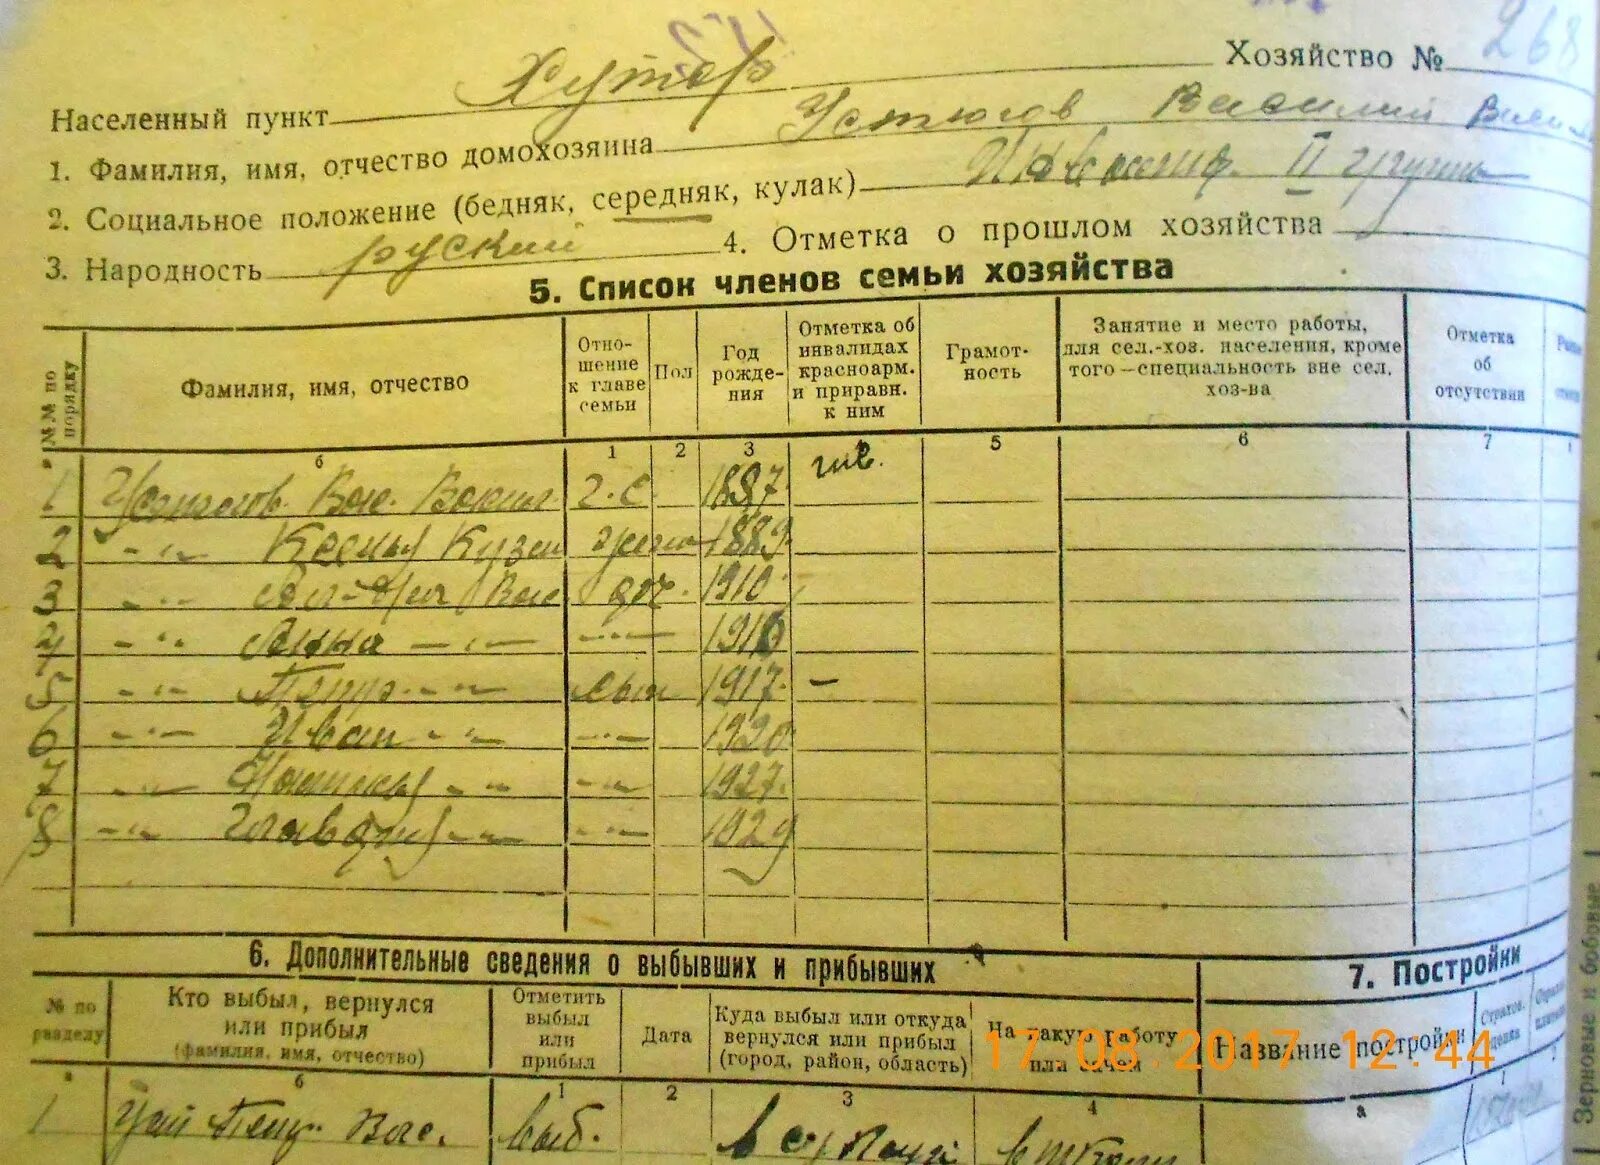 Хозяйство № 268
Населенный пункт Хутор
1. Фамилия, имя, отчество домохозяина Устюгов Василий
2. Социальное положение (бедняк, середняк, кулак) Инвалид II группы
3. Народность руский 4. Отметка о прошлом хозяйства
5. Список членов семьи хозяйства
№№ по порядку
Фамилия, имя, отчество
Отно-
шение
к главе
семьи
Пол
Год
рожде-
ния
Отметка об
инвалидах
красноарм.
и приравн.
к ним
Грамот-
ность
Занятие и место работы,
для сел.-хоз. населения, кроме
того—специальность вне сел.
хоз-ва
Отметка
об
отсутствии
б 1 2 3 5 6 7
1 Устюгов Вас. г.с. 1887 инв.
2 -"- Ксенья Кузм жена 1889
3 -"- Вас доч. 1910
4 -"- Анна -"- -"- 1916
5 -"- Петр -"- сын 1917 -
6 -"- Иван -"- -"- 1920
7 -"- -"- -"- 1927
8 -"- Клавдия -"- -"- 1929
6. Дополнительные сведения о выбывших и прибывших
7. Постройки
№ по
разделу
Кто выбыл, вернулся
или прибыл
(фамилия, имя, отчество)
Отметить
выбыл
или
прибыл
Дата
Куда выбыл или откуда
вернулся или прибыл
(город, район, область)
На какую работу
или зачем
Название постройки
17 08 2017 12:44
а б 1 2 3 4 а 1
1 Уст Петр Вас. выб.
Зерновые и бобовые